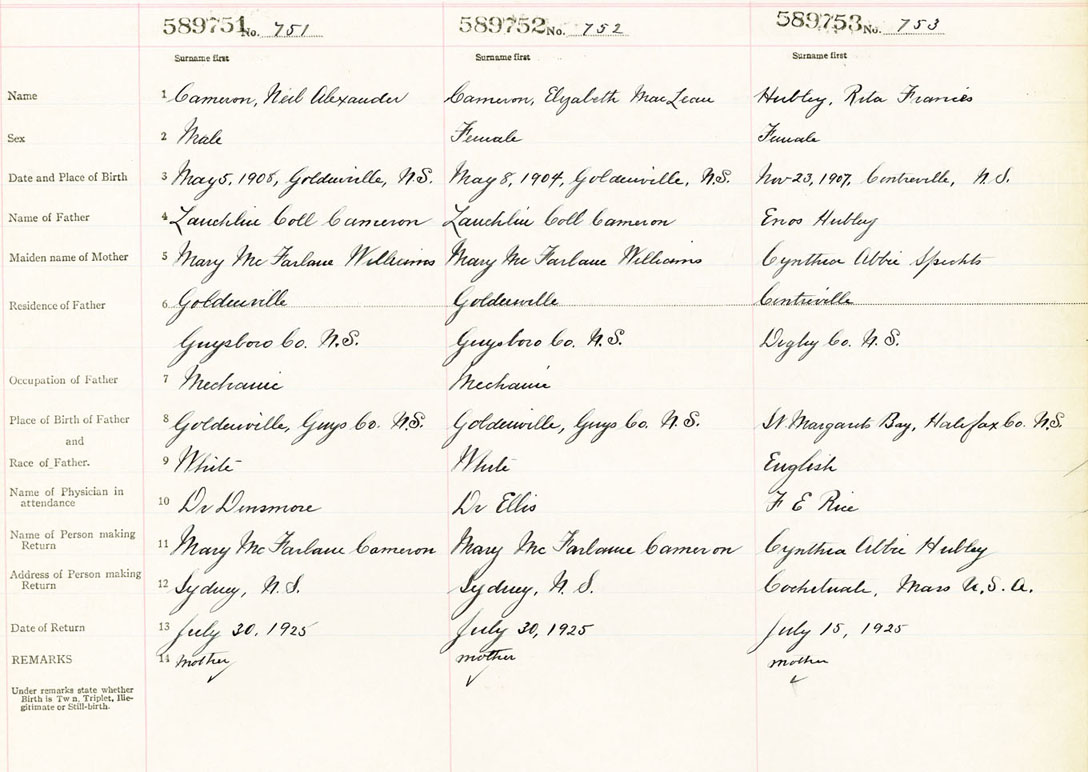 589751 No. 751 589752 No. 752 589753 No. 753
Surname first Surname first Surname first
Name 1 Cameron, Neil Alexander Cameron, Elizabeth MacLean Hubley, Rita Francis
Sex 2 Male Female Female
Date and Place of Birth 3 May 5, 1908, Goldenville, N.S. May 8, 1904, Goldenville, N.S. Nov 23, 1907, Centreville, N.S.
Name of Father 4 Lauchlin Coll Cameron Lauchlin Coll Cameron Enos Hubley
Maiden name of Mother 5 Mary Mc Farlane Williams Mary Mc Farlane Williams Cynthia Abbie Speckts
Residence of Father 6 Goldenville Goldenville Centreville
Guysboro Co. N.S. Guysboro Co. N.S. Digby Co. N.S.
Occupation of Father 7 Mechanic Mechanic
Place of Birth of Father 8 Goldenville, Guys Co. N.S. Goldenville, Guys Co. N.S. St Margarets Bay, Halifax Co. N.S.
and
Race of Father. 9 White White English
Name of Physician in
attendance 10 Dr Dinsmore Dr Ellis F E Rice
Name of Person making
Return 11 Mary Mc Farlane Cameron Mary Mc Farlane Cameron Cynthia Abbie Hubley
Address of Person making
Return 12 Sydney, N.S. Sydney, N.S. Cochituate, Mass U.S.A.
Date of Return 13 July 30, 1925 July 30, 1925 July 15, 1925
REMARKS 14 mother mother mother
Under remarks state whether
Birth is Tw n, Triplet, Ille-
gitimate or Still-birth.